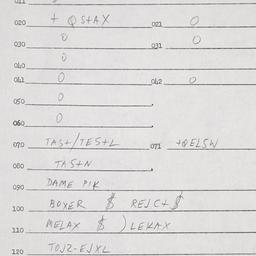 011
020 + QS+AX 021 0
030 0 031 0
0
040
041 0 042 0
050 0
060 0
070 TAS+/TES+L 071 +QELSW
080 TAS+N
090 DAME PIK
100 BOXER $ REJC+$
110 MELAX $ ) LEKAX
120 TOJ2-EJXL